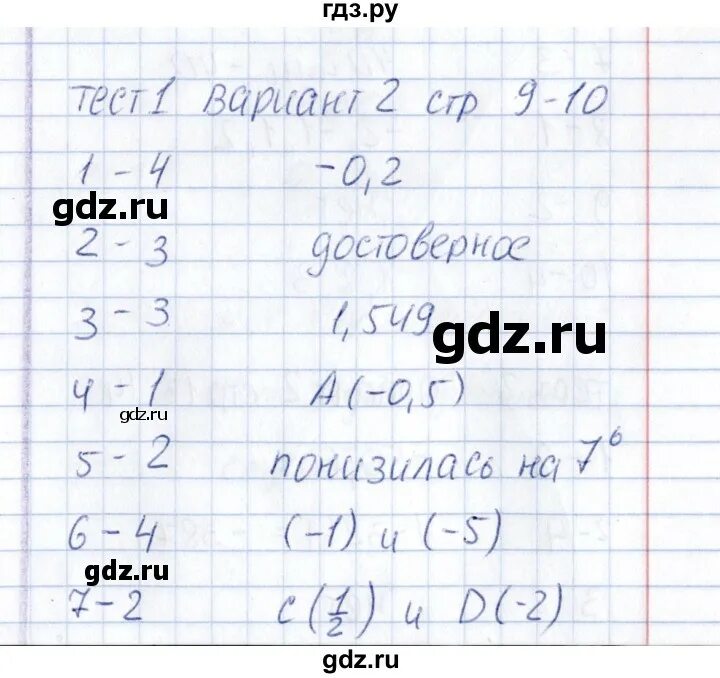 гдз.ру
тест 1 вариант 2 стр 9-10
1 - 4 -0,2
gdz.ru
2 - 3 достоверное
3 - 3 1,549
gdz.ru
4 - 1 A(-0,5)
gdz.ru
5 - 2 понизилась на 7⁶
6 - 4 (-1) и (-5)
gdz.ru
7 - 2 C(1/2) и D(-2)
gdz.ru